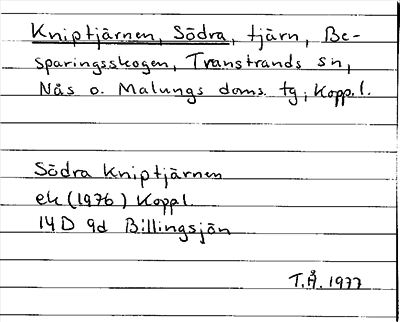 Kniptjärnen, Södra, tjärn, Be-
sparingsskogen, Transtrands sn,
Nås o. Malungs doms. tg, Kopp.l.
Södra Kniptjärnen
ek (1976) Koppl.
14D 9d Billingsjön
T.Å. 1977